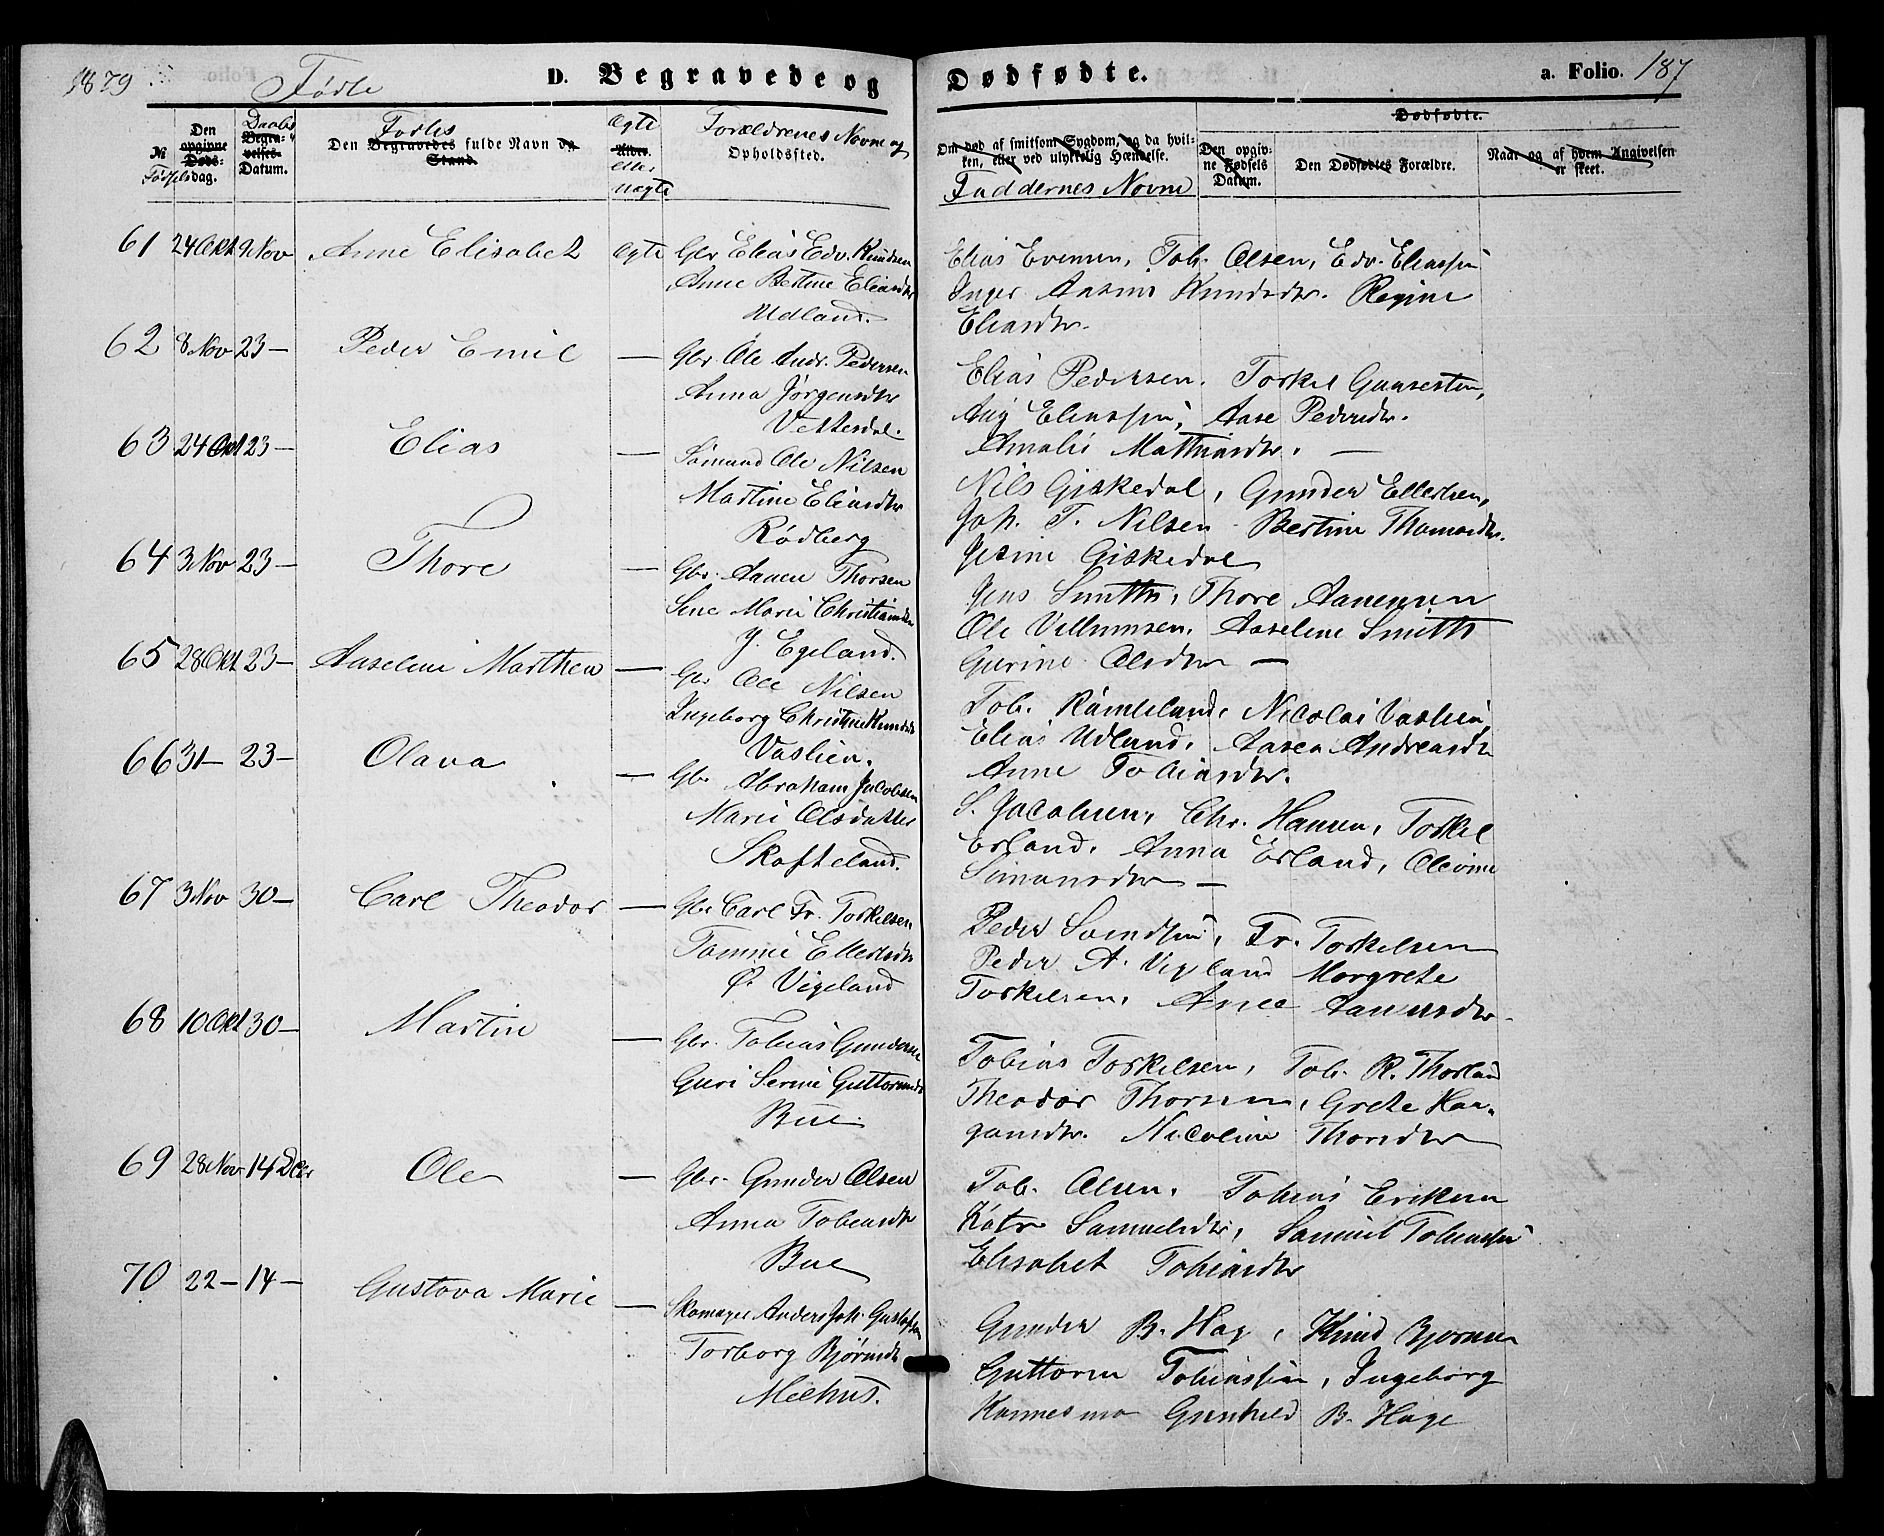 1879 Fødte D. Begravede og Dødfødte. a. Folio. 187
№ Fødselsdag. Den opgivne Døds- dag.
Daabs Begravelses- Datum.
Den Fødtes Begravedes fulde Navn og Stand.
Ægte Alder. eller uægte
Forældrenes Navne og Opholdssted.
Om død af smitsom Sygdom, og da hvilken, eller ved ulykkelig Hændelse.
Faddernes Navne
Dødfødte.
Den opgivne Fødsels Datum.
Den Dødfødtes Forældre.
Naar og af hvem Angivelsen er skeet.
61 24 Okt 9 Nov Anne Elisabet ægte Gbr Elias Edv. Knudsen
Anne Bertine Eliasdtr
Udland.
Elias Evensen, Tob. Olsen, Edv. Eliassen
Inger Aasine Knudsdtr. Regine
Eliasdtr.
62 8 Nov 23 — Peder Emil — Gbr Ole Andr. Pedersen
Anna Jørgensdtr
Vettedal.
Elias Pedersen. Torkel
Aug Eliassen, Aase Pedersdtr.
Amalie Mathiasdtr. —
63 24 Okt 23 — Elias — Sømand Ole Nilsen
Martine Eliasdtr
Rødberg
Nils Giskedal, Gunder Ellefsen,
Joh. T. Nilsen Bertine Thomasdtr.
Jesine Giskedal
64 3 Nov 23 — Thore — Gbr. Aanen Thorsen
Sine Marie Christiansdtr
Y. Egeland.
Jens Smith, Thore Aanensen
Ole Villumsen. Aaselene Smith
Gurine Olsdtr —
65 28 Okt 23 — Aaselene Marthea — Gbr Ole Nilsen
Ingeborg Christine Knudsdtr
Vaslien.
Tob. Rømteland, Nicolai Vaslien,
Elias Udland, Aasea Andreasdtr
Anne Tobiasdtr.
66 31 — 23 — Olava — Gbr. Abraham Jacobsen
Marie Olsdatter
Skofteland.
S. Jacobsen, Chr. Hansen, Torkel
Erland. Anna Erland, Olevine
Simonsdtr —
67 3 Nov 30 — Carl Theodor — Gbr Carl Fr. Torkelsen
Tomine Ellefsdtr
Ø. Vigeland
Peder Svendsen, Fr. Torkelsen
Peder A. Vigeland Margrete
Torkelsen, Anne Aanensdtr.
68 10 Okt 30 — Martin — Gbr. Tobias Gundersen
Guri Serine Guttormsdtr
Bue.
Tobias Torkelsen, Tob. R. Thorland
Theodor Thorsen, Grete Haa-
gansdtr. Nicoline Thorsdtr
69 28 Nov 14 Dcbr Ole — Gbr. Gunder Olsen
Anna Tobiasdtr
Bue
Tob. Olsen. Tobias Eriksen
Katr Samuelsdtr, Samuel Tobiassen
Elisabet Tobiasdtr
70 22 — 14 — Gustava Marie — Skomager Anders Joh. Gustafsen
Torborg Bjørnsdtr
Meehus.
Gunder B. Hage, Knud Bjørnsen
Guttorm Tobiassen, Ingeborg
Kannesmo Gunhild B. Hage